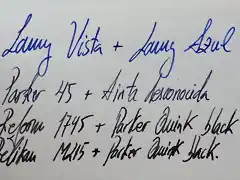 Lamy Vista + Lamy Azul
Parker 45 + Tinta desconocida
Reform 1745 + Parker Quink black
Pelikan M215 + Parker Quink black.